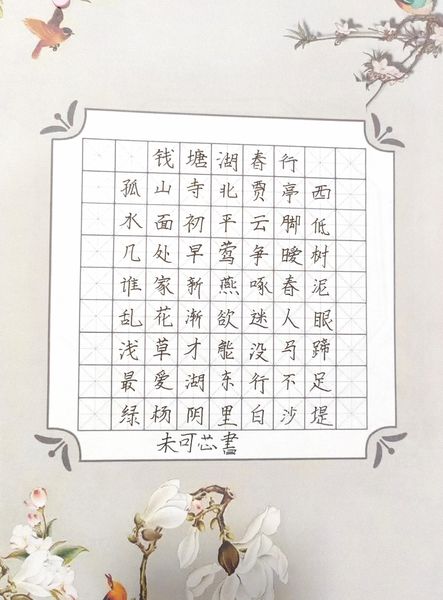 钱塘湖春行
孤山寺北贾亭西
水面初平云脚低
几处早莺争暖树
谁家新燕啄春泥
乱花渐欲迷人眼
浅草才能没马蹄
最爱湖东行不足
绿杨阴里白沙堤
未可芯書